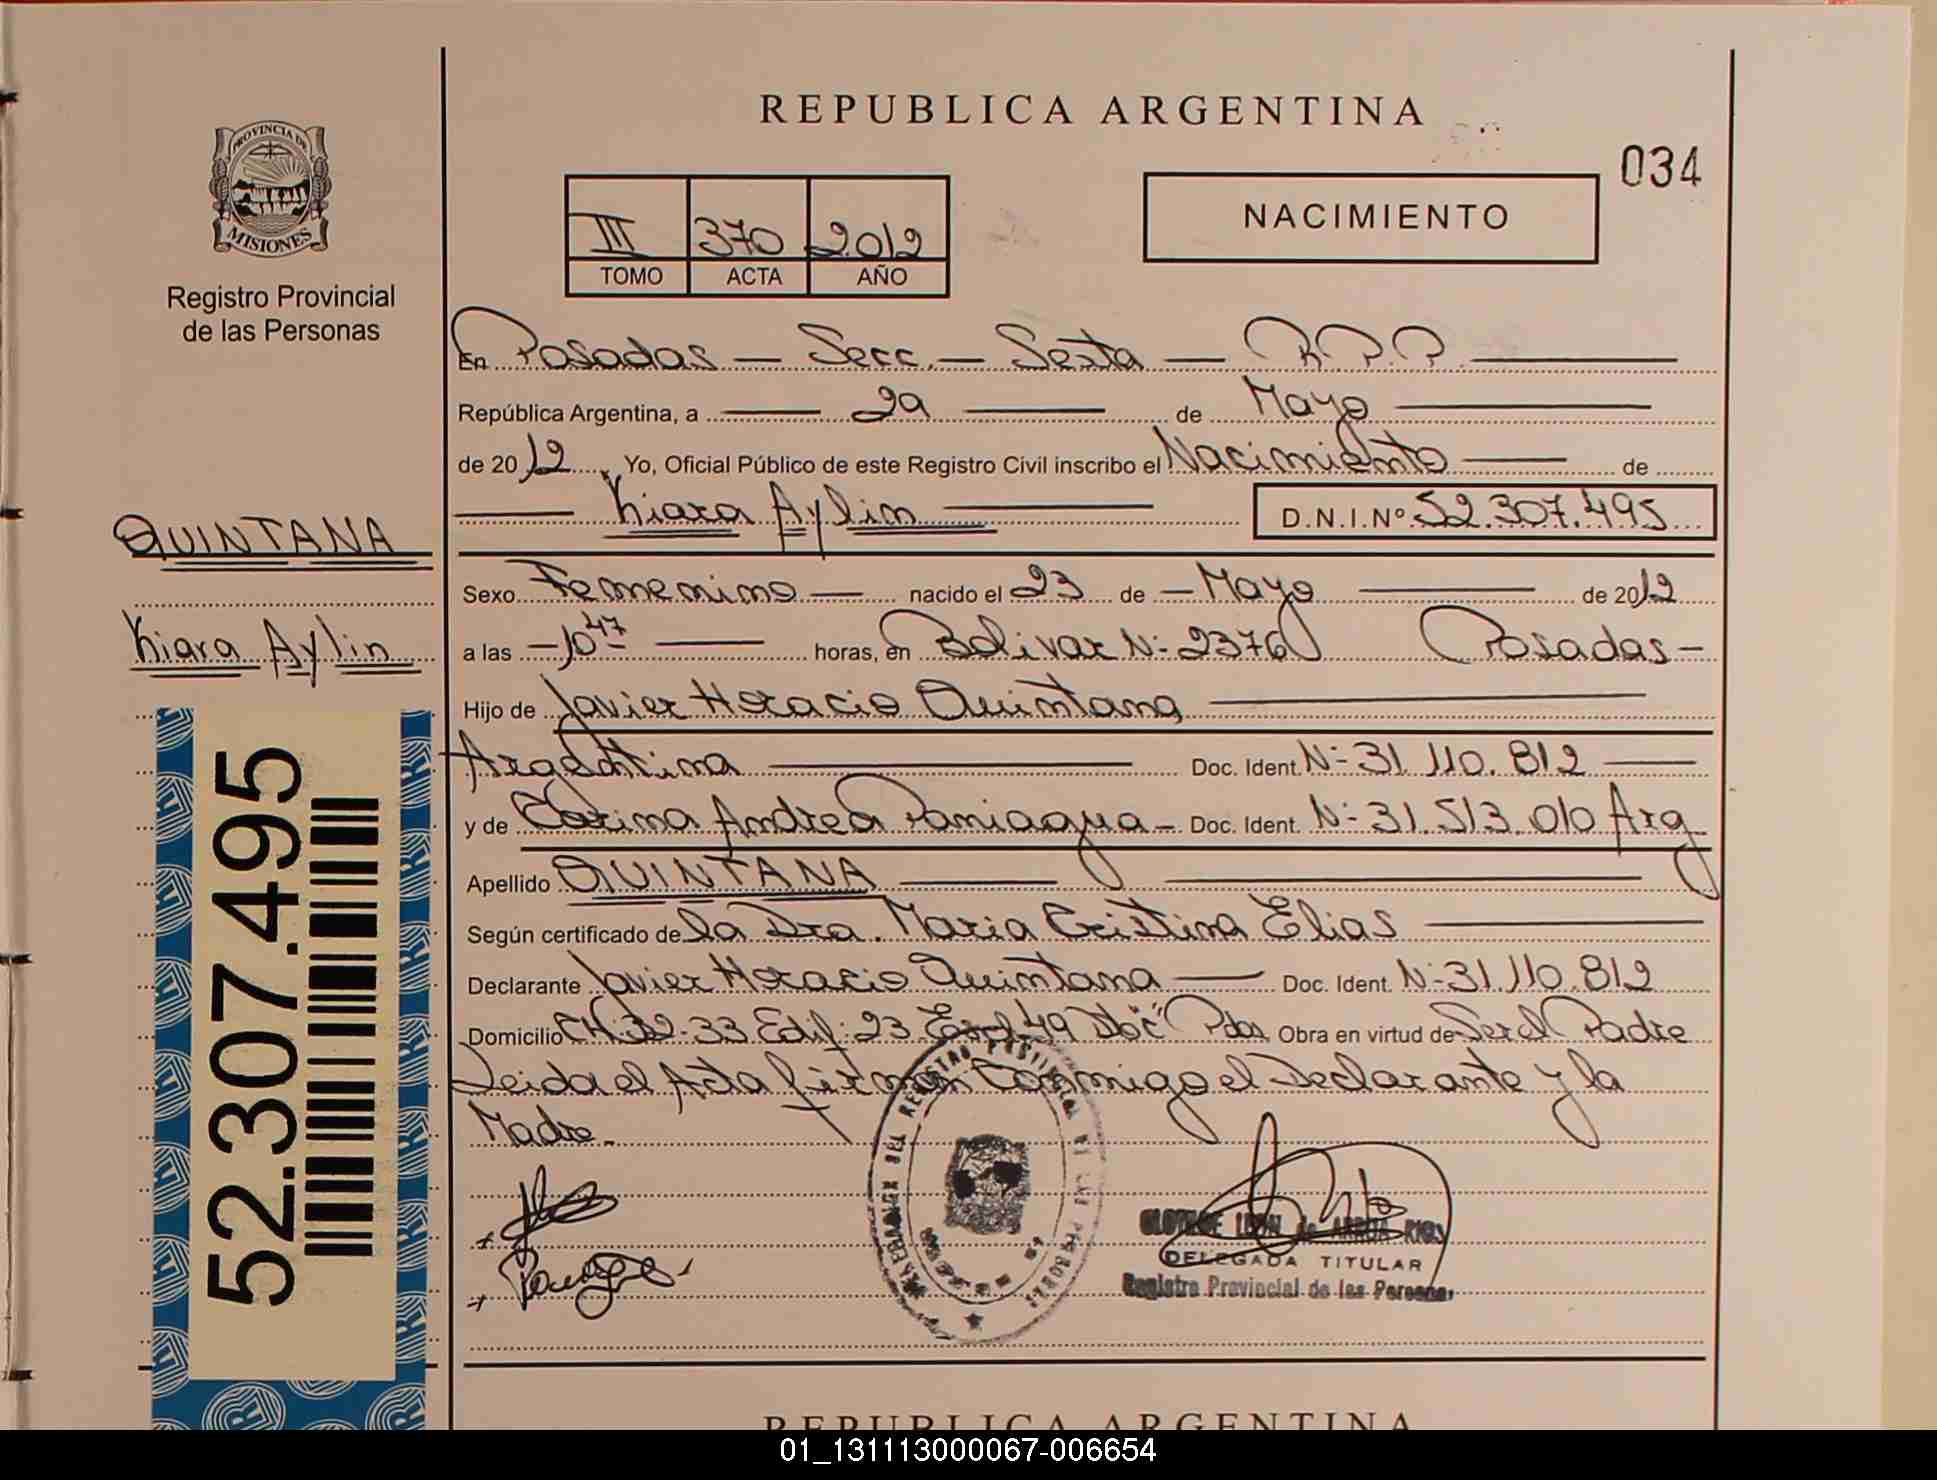 REPUBLICA ARGENTINA
034
PROVINCIA DE
MISIONES
Registro Provincial
de las Personas
III 370 2012
TOMO ACTA AÑO
NACIMIENTO
En Posadas — Secc. — Sexta — R.P.P.
República Argentina, a 29 de Mayo
de 2012, Yo, Oficial Público de este Registro Civil inscribo el Nacimiento de
Kiara Aylin D.N.I.Nº 52.307.495
QUINTANA
Kiara Aylin
Sexo Femenino nacido el 23 de Mayo de 2012
a las 10 47 horas, en Bolivar N- 2376 Posadas
Hijo de Javier Horacio Quintana
Argentina Doc. Ident. N- 31.110.812
y de Carina Andrea Paniagua Doc. Ident. N- 31.513.010 Arg
Apellido QUINTANA
Según certificado de la Dra. Maria Cristina Elias
Declarante Javier Horacio Quintana Doc. Ident. N- 31.110.812
Domicilio CH: 32-33 Edif: 23 49 "C" Pdas Obra en virtud de Ser el Padre
Leida el Acta firman Conmigo el Declarante y la
Madre.
52.307.495
DELEGADA TITULAR
Registro Provincial de las Personas
REPUBLICA ARGENTINA
01_131113000067-006654